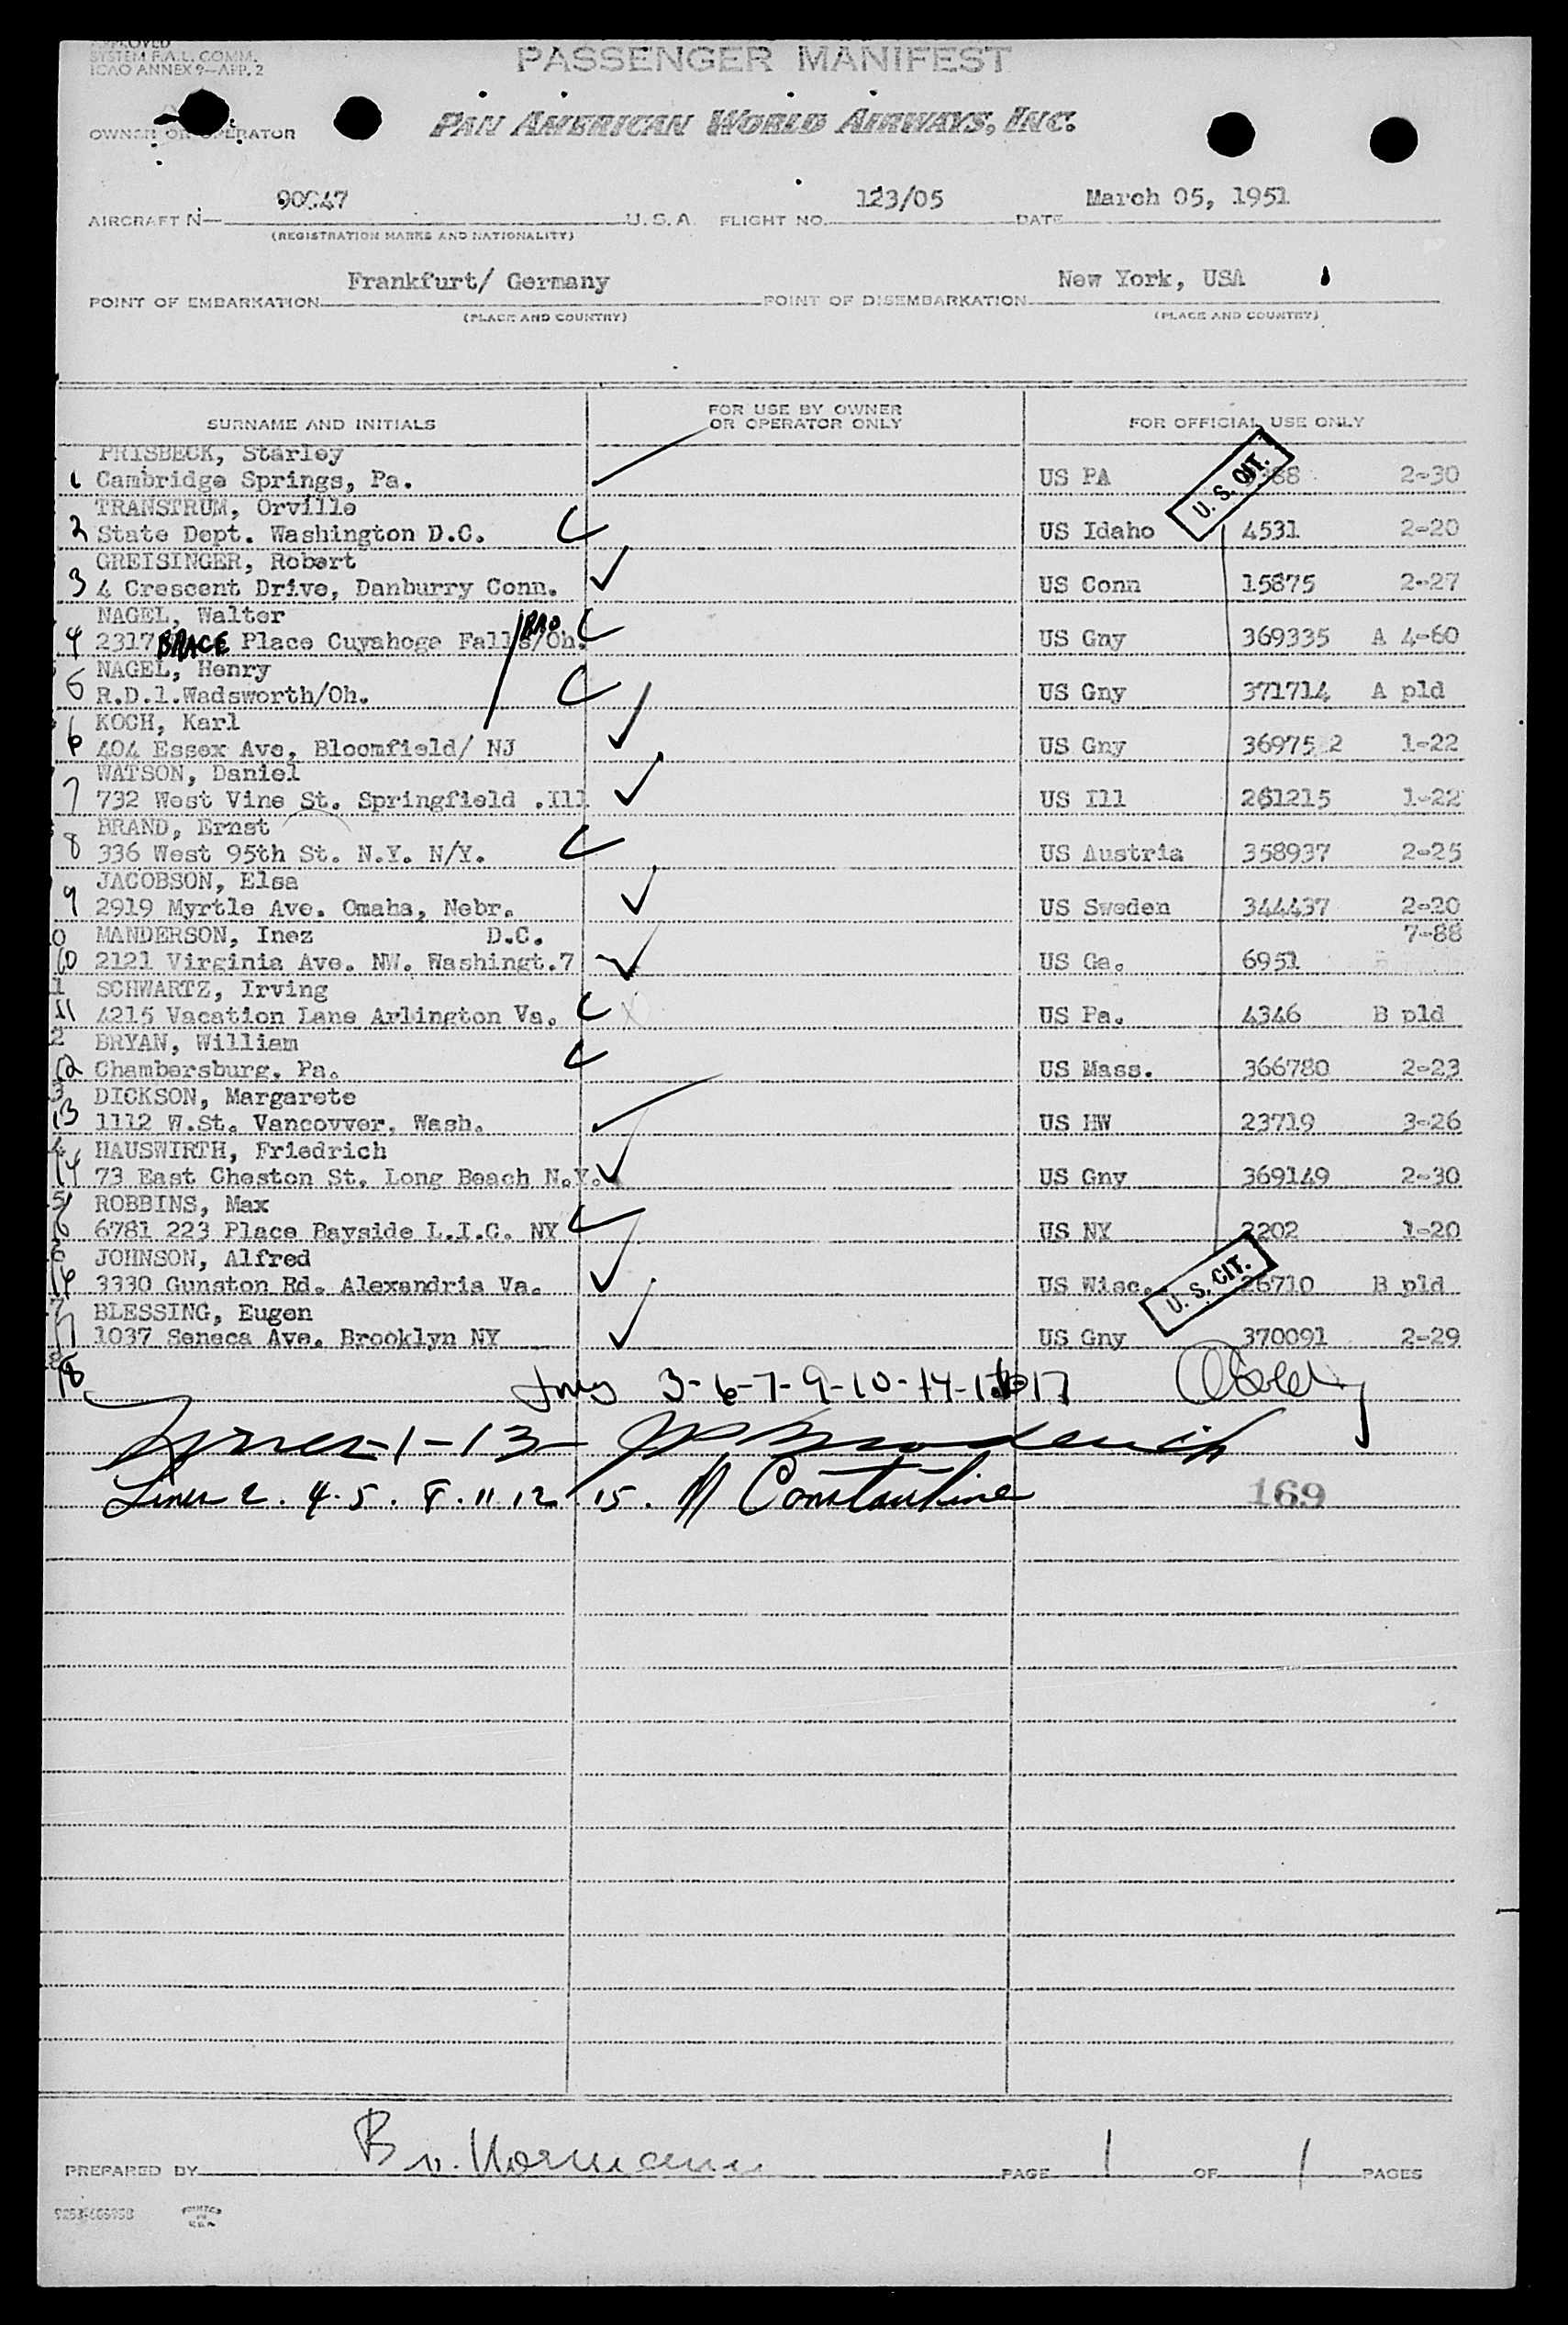 APPROVED
SYSTEM F.A.L. COMM.
ICAO ANNEX 9—APP. 2
PASSENGER MANIFEST
OWNER OR OPERATOR
PAN AMERICAN WORLD AIRWAYS, INC.
AIRCRAFT N— 90947 U.S.A. FLIGHT NO. 123/05 DATE March 05, 1951
(REGISTRATION MARKS AND NATIONALITY)
POINT OF EMBARKATION Frankfurt/ Germany POINT OF DISEMBARKATION New York, USA
(PLACE AND COUNTRY) (PLACE AND COUNTRY)
SURNAME AND INITIALS FOR USE BY OWNER OR OPERATOR ONLY FOR OFFICIAL USE ONLY
PRISBECK, Starley
1 Cambridge Springs, Pa. US PA 88 2-30
U. S. CIT.
TRANSTRUM, Orville
2 State Dept. Washington D.C. US Idaho 4531 2-20
GREISINGER, Robert
3 4 Crescent Drive, Danburry Conn. US Conn 15875 2-27
NAGEL, Walter
4 2317 BRACE Place Cuyahoga Falls/Oh. US Gny 369335 A 4-60
NAGEL, Henry
5 R.D.1.Wadsworth/Oh. US Gny 371714 A pld
KOCH, Karl
6 404 Essex Ave, Bloomfield/ NJ US Gny 36975 2 1-22
WATSON, Daniel
7 732 West Vine St. Springfield .Ill US Ill 261215 1-22
BRAND, Ernst
8 336 West 95th St. N.Y. N/Y. US Austria 358937 2-25
JACOBSON, Elsa
9 2919 Myrtle Ave. Omaha, Nebr. US Sweden 344437 2-20
MANDERSON, Inez D.C. 7-88
10 2121 Virginia Ave. NW. Washingt.7 US Ga. 6951
SCHWARTZ, Irving
11 4215 Vacation Lane Arlington Va. US Pa. 4346 B pld
BRYAN, William
12 Chambersburg. Pa. US Mass. 366780 2-23
DICKSON, Margarete
13 1112 W.St. Vancovver. Wash. US HW 23719 3-26
HAUSWIRTH, Friedrich
14 73 East Cheston St. Long Beach N.Y. US Gny 369149 2-30
ROBBINS, Max
6781 223 Place Bayside L.I.C. NY US NY 3202 1-20
JOHNSON, Alfred
16 3330 Gunston Rd. Alexandria Va. US Wisc. 26710 B pld
U. S. CIT.
BLESSING, Eugen
17 1037 Seneca Ave. Brooklyn NY US Gny 370091 2-29
18 3-6-7-9-10-14-16 17
Lines-1-13
Lines 2. 4. 5. 8. 11 12 15. Constantine
169
PREPARED BY B v. Normann PAGE 1 OF 1 PAGES
PRINTED IN U.S.A.